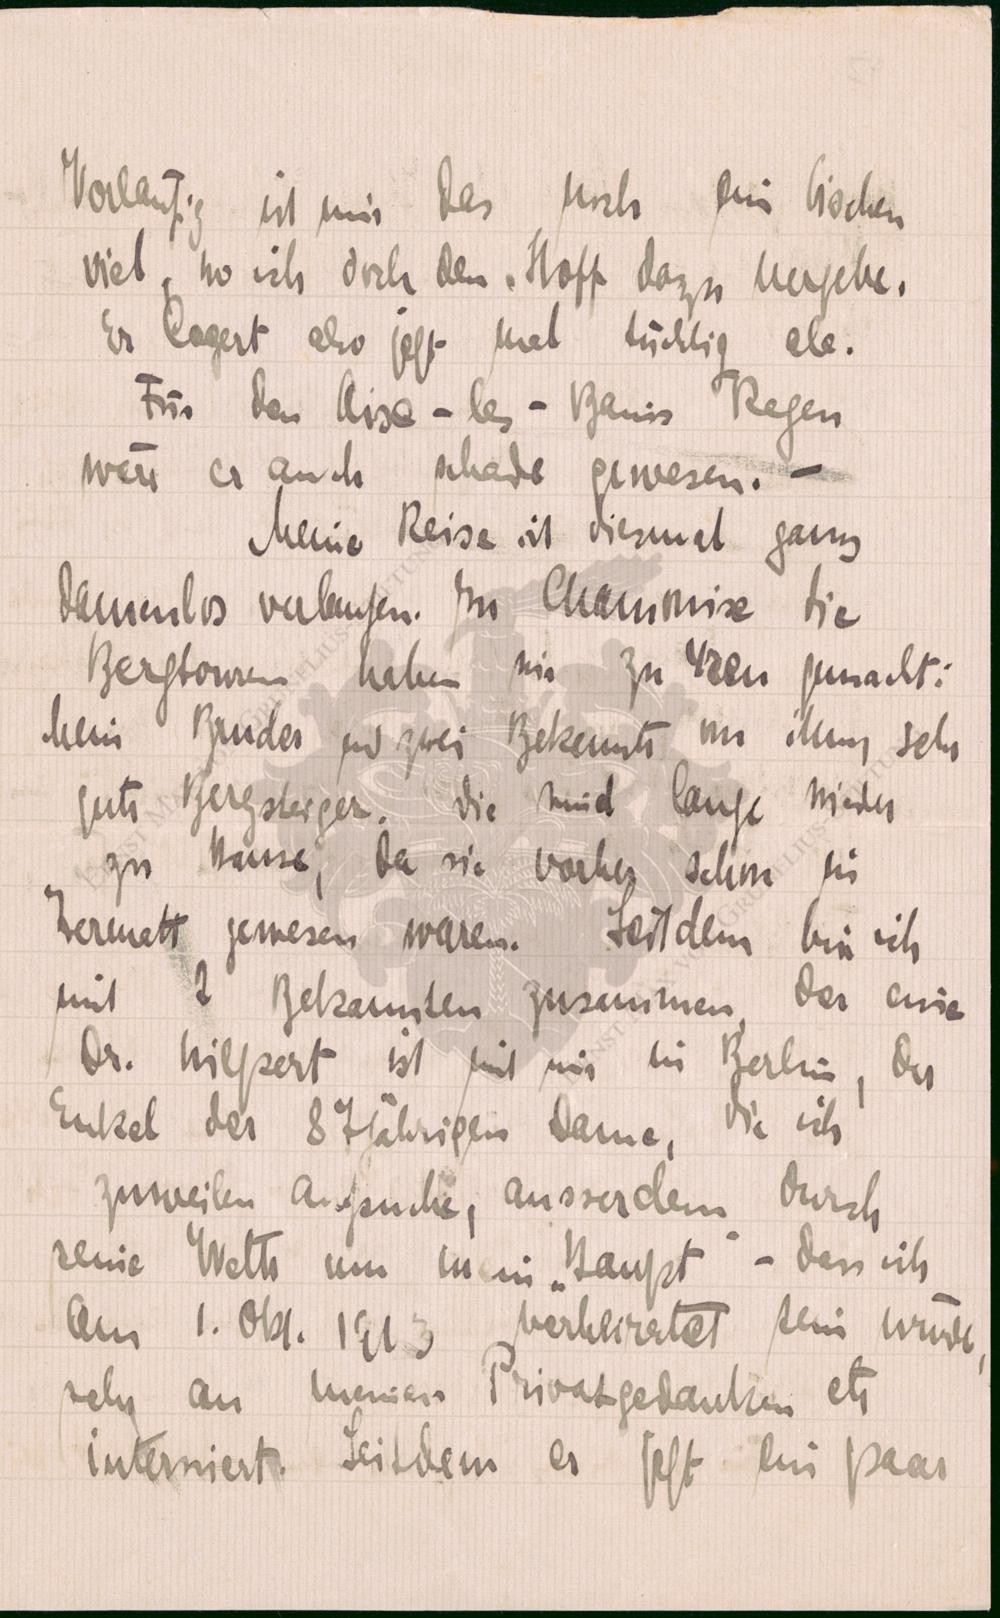 Vorläufig ist mir das noch ein bischen
viel, wo ich doch den Stoff dazu hergebe.
Er lagert also jetzt mal tüchtig ab.
Für den Aixe-les-Bains Regen
wär er auch schade gewesen. —
Meine Reise ist diesmal ganz
damenlos verlaufen. In Chamonix die
Bergtouren haben wir zu 4ren gemacht:
Mein Bruder und zwei Bekannte von ihm, sehr
gute Bergsteiger. Die sind lange wieder
zu Hause, da sie vorher schon in
Zermatt gewesen waren. Seitdem bin ich
mit 2 Bekannten zusammen, der eine
Dr. Hilpert ist mit mir in Berlin, der
Enkel der 87jährigen Dame, die ich
zuweilen aufsuche, ausserdem durch
seine Wette um mein „Haupt" - dass ich
am 1. Okt. 1913 verheiratet sein würde,
sehr an meinen Privatgedanken etc
interniert. Seitdem er jetzt ein paar